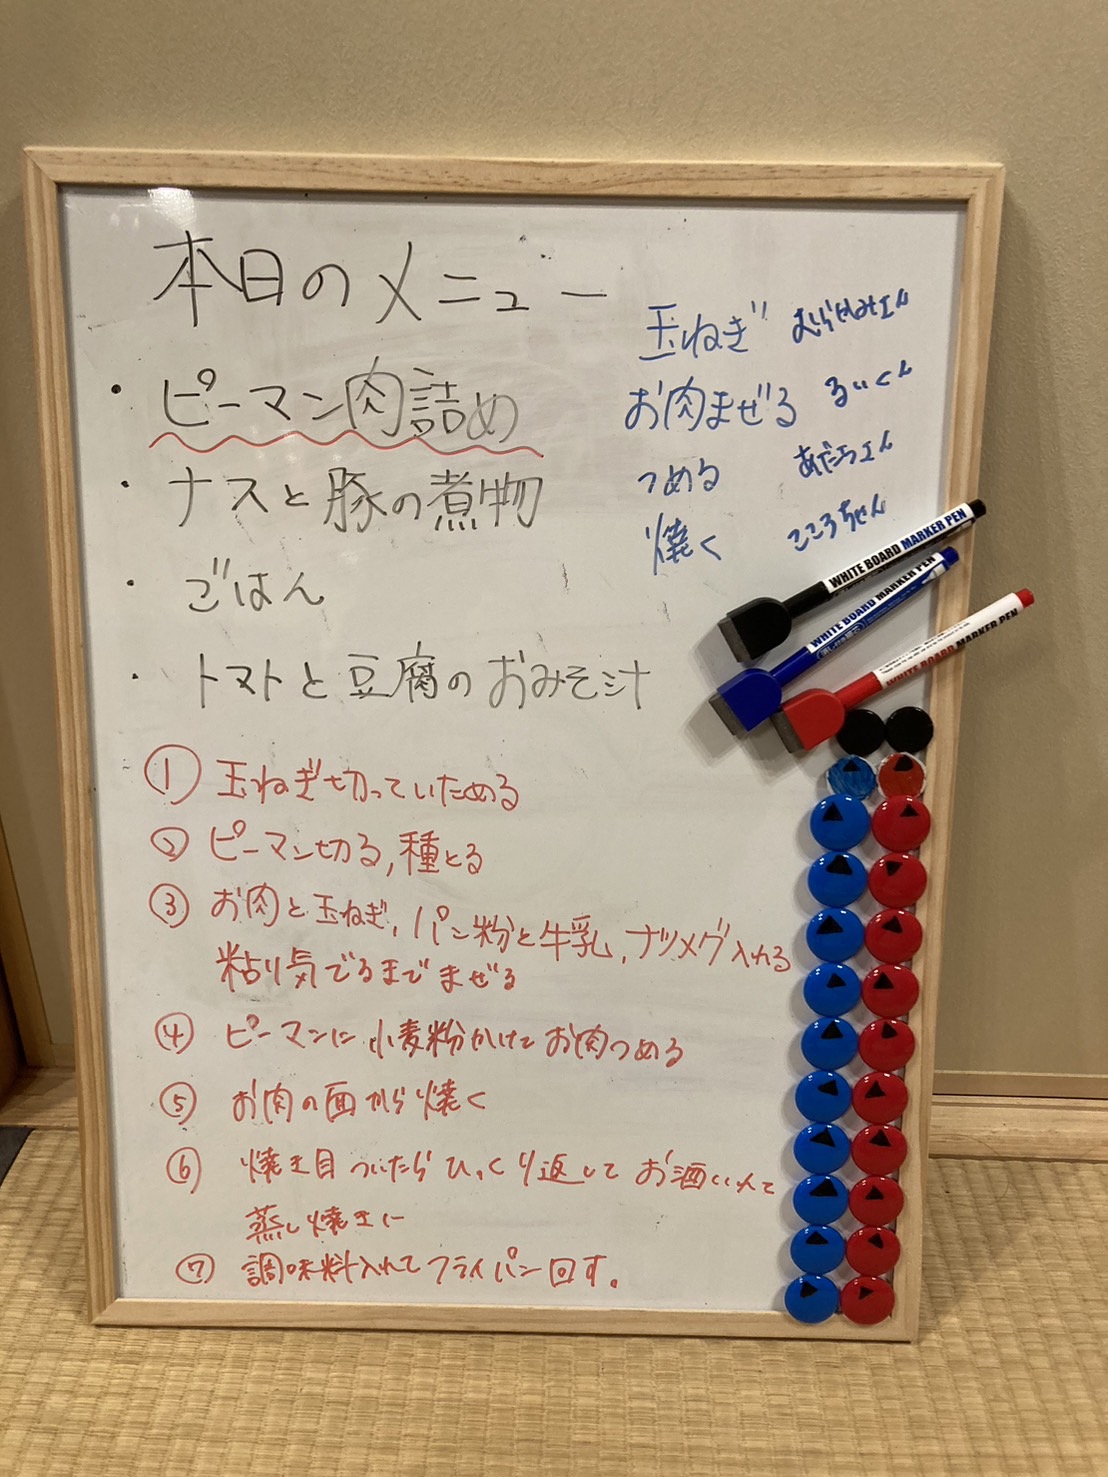 本日のメニュー
・ピーマン肉詰め
・ナスと豚の煮物
・ごはん
・トマトと豆腐のおみそ汁
玉ねぎ
お肉まぜる るいくん
つめる あだちさん
焼く こころちゃん
WHITE BOARD MARKER PEN
WHITE BOARD MARKER PEN
WHITE BOARD MARKER PEN
① 玉ねぎ切っていためる
② ピーマン切る,種とる
③ お肉と玉ねぎ,パン粉と牛乳,ナツメグ入れる
粘り気でるまでまぜる
④ ピーマンに小麦粉かけてお肉つめる
⑤ お肉の面から焼く
⑥ 焼き目ついたらひっくり返してお酒いれて
蒸し焼きに
⑦ 調味料入れてフライパン回す。